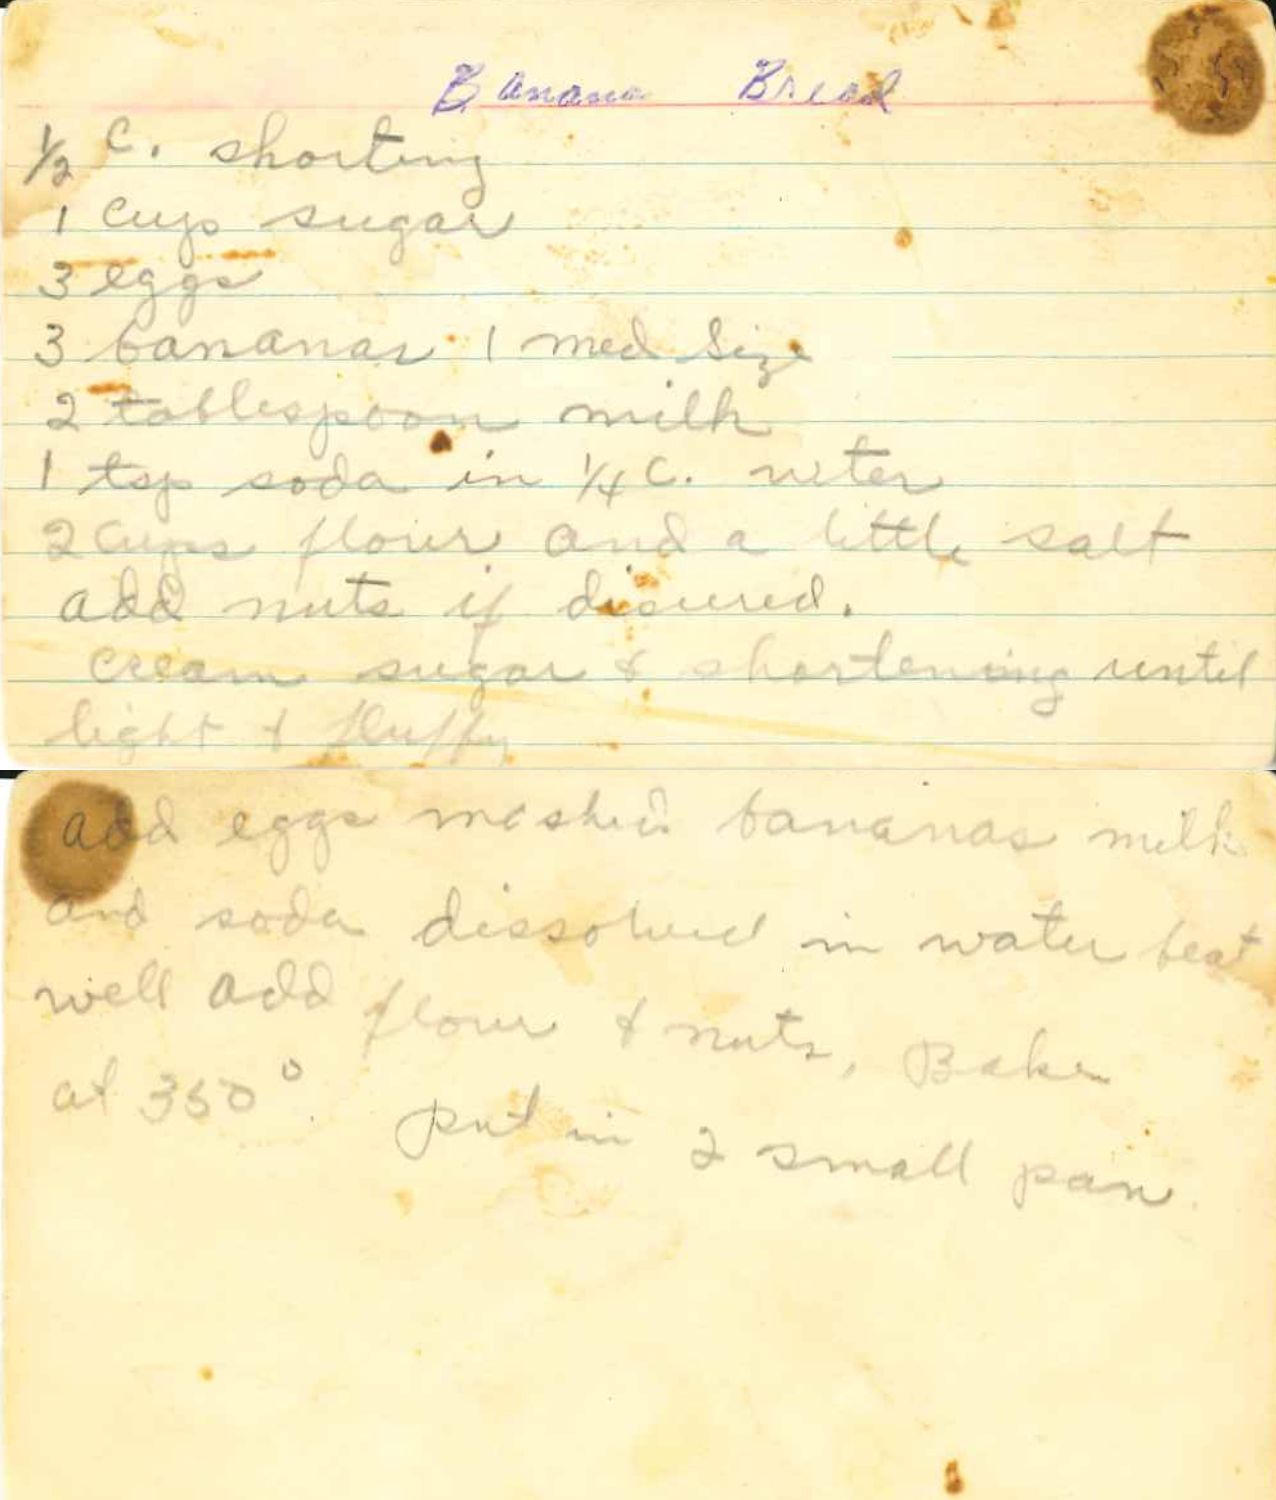 Banana Bread
1/2 C. shorting
1 cup sugar
3 eggs
3 bananas 1 med size
2 tablespoon milk
1 tsp soda in 1/4 C. water
2 cups flour and a little salt
add nuts if disired.
cream sugar & shortening until
light & fluffy
add eggs mashed bananas milk
and soda dissolved in water beat
well add flour & nuts, Bake
at 350°. put in 2 small pan.